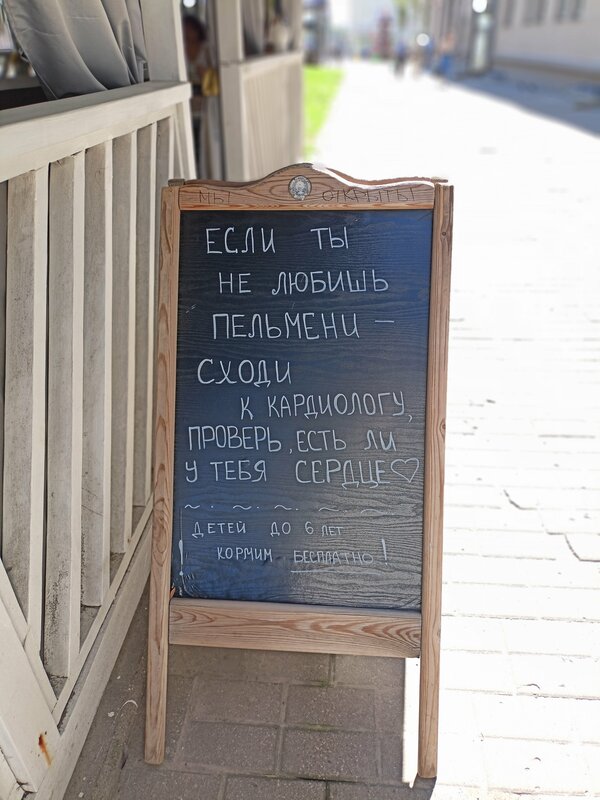 МЫ ОТКРЫТЫ
ЕСЛИ ТЫ
НЕ ЛЮБИШЬ
ПЕЛЬМЕНИ –
СХОДИ
К КАРДИОЛОГУ,
ПРОВЕРЬ, ЕСТЬ ЛИ
У ТЕБЯ СЕРДЦЕ♡
ДЕТЕЙ ДО 6 ЛЕТ
! КОРМИМ БЕСПЛАТНО!